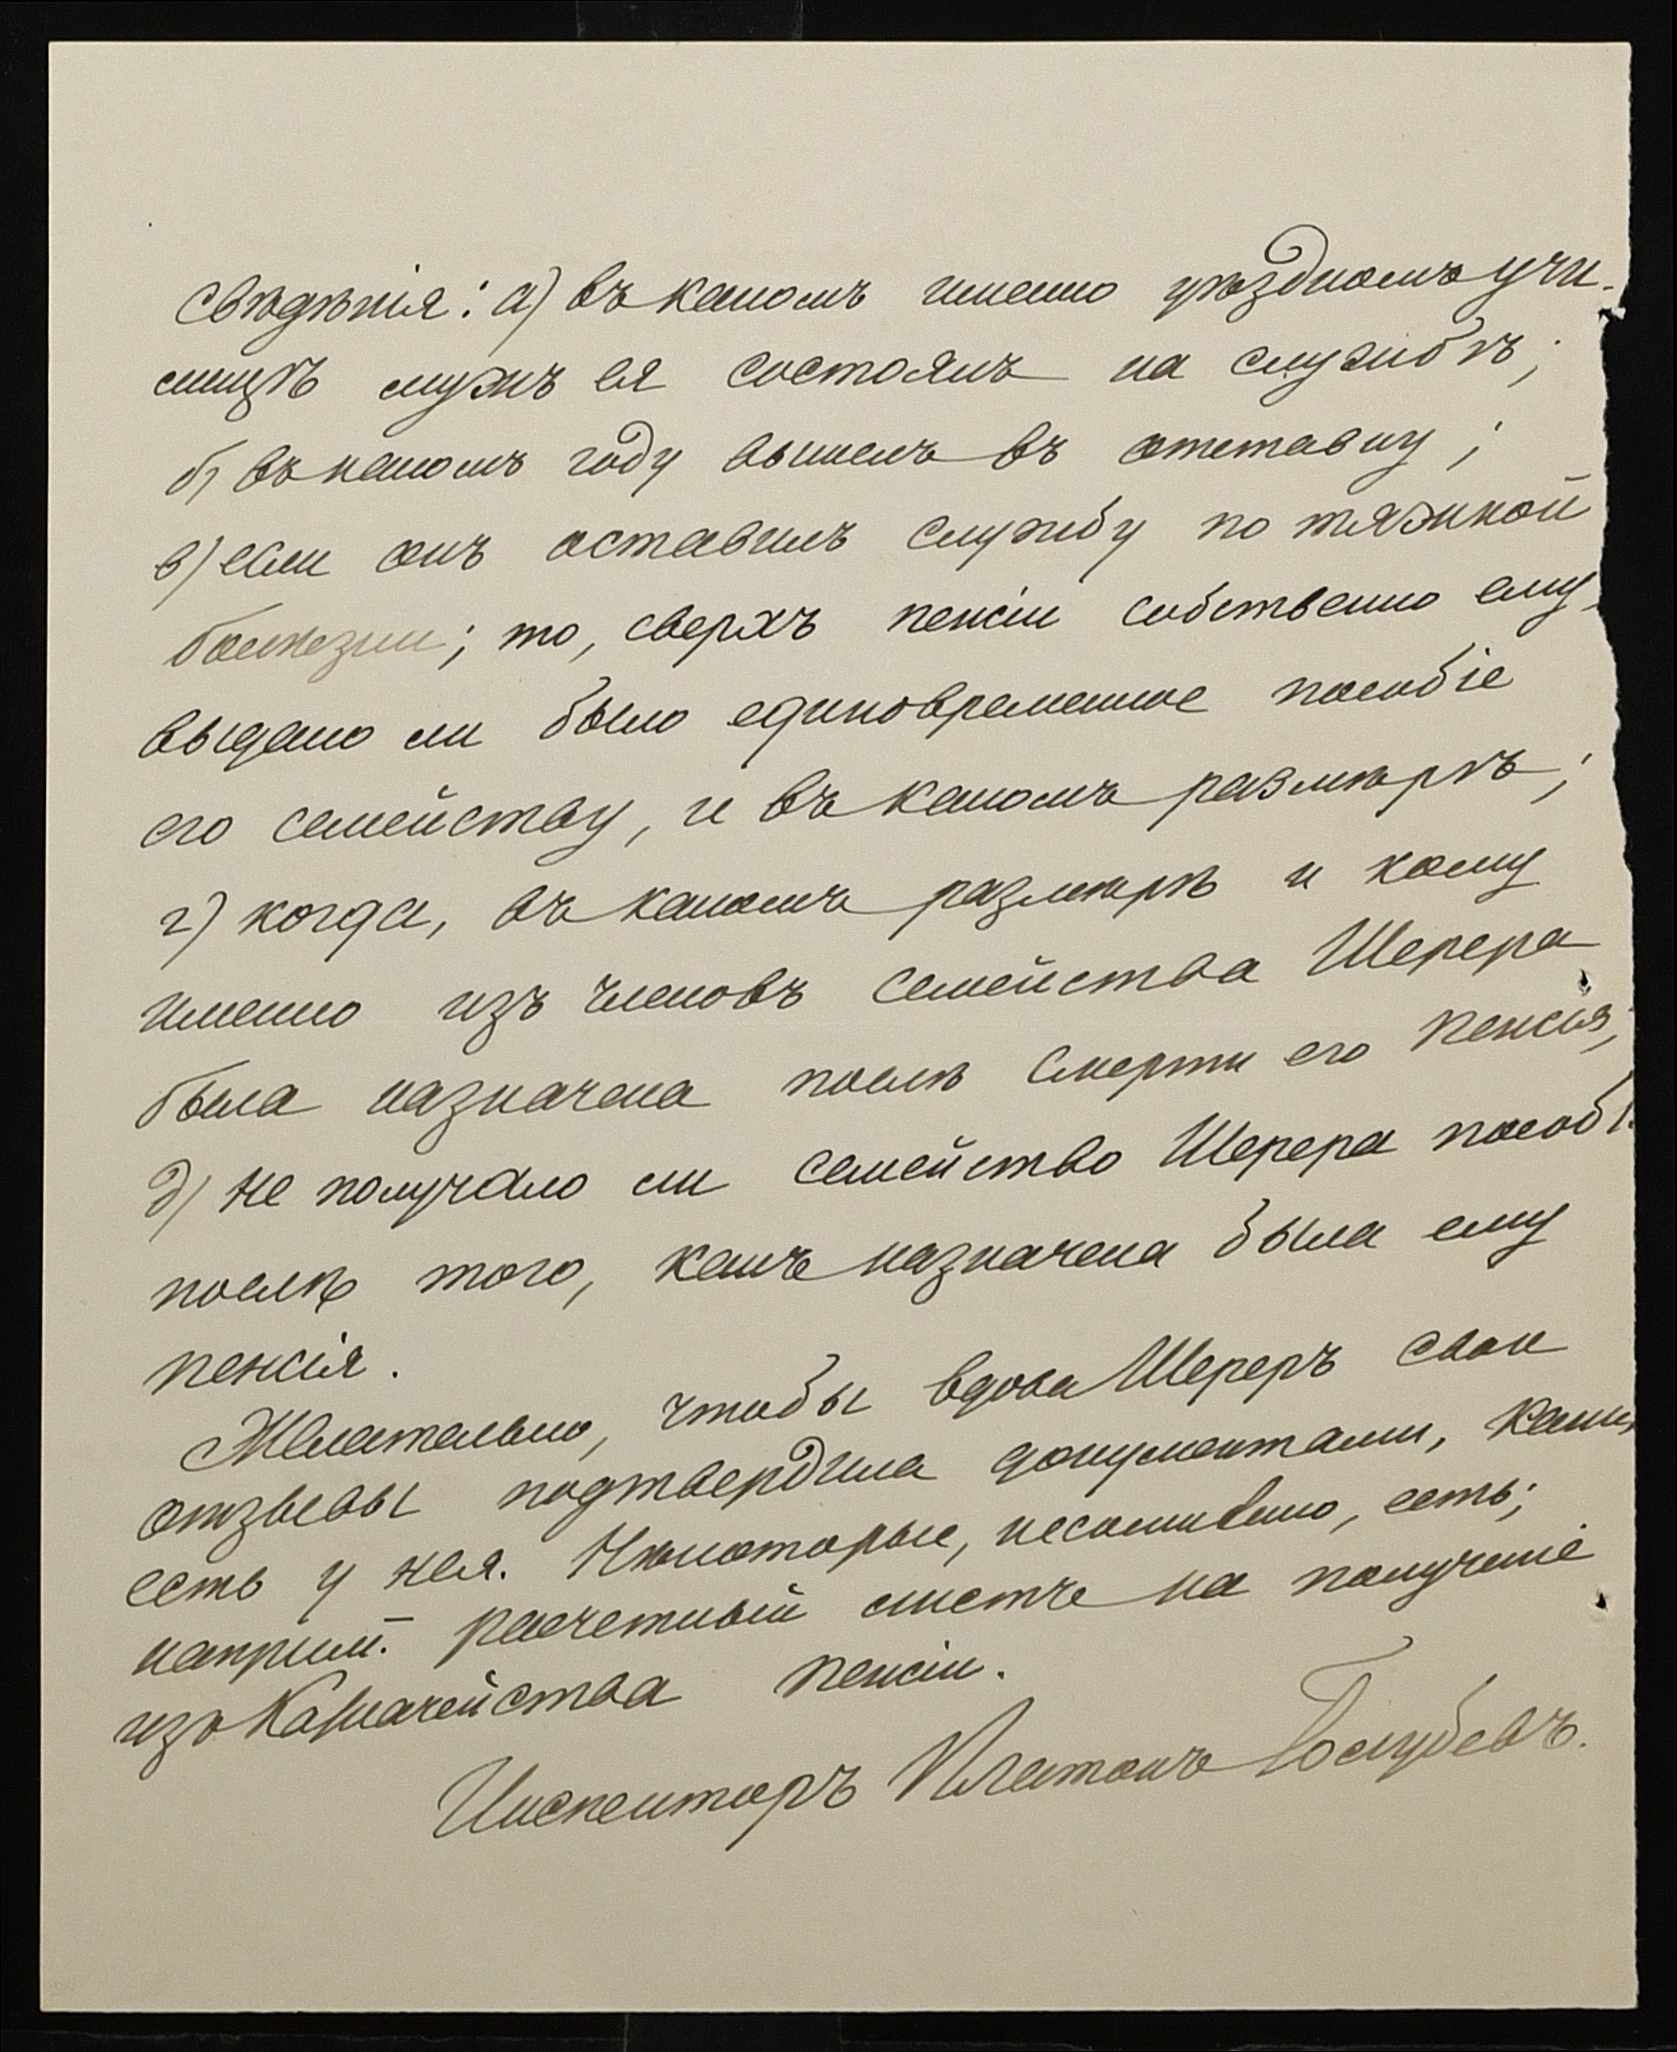 свѣдѣнія: а) въ какомъ именно уѣздномъ учи-
лищѣ мужъ ея состоялъ на службѣ;
б) въ какомъ году вышелъ въ отставку;
в) если онъ оставилъ службу по тяжкой
болѣзни; то, сверхъ пенсіи собственно ему,
выдано ли было единовременное пособіе
его семейству, и въ какомъ размѣрѣ;
г) когда, въ какомъ размѣрѣ и кому
именно изъ членовъ семейства Шерера
была назначена послѣ смерти его пенсія;
д) не получало ли семейство Шерера пособі
послѣ того, какъ назначена была ему
пенсія.
Желательно, чтобы вдова Шереръ свои
отзывы подтвердила документами, какіе
есть у нея. Нѣкоторые, несомнѣнно, есть;
наприм. расчетный листъ на полученіе
изъ Казначейства пенсіи.
Инспекторъ Платонъ Голубевъ.